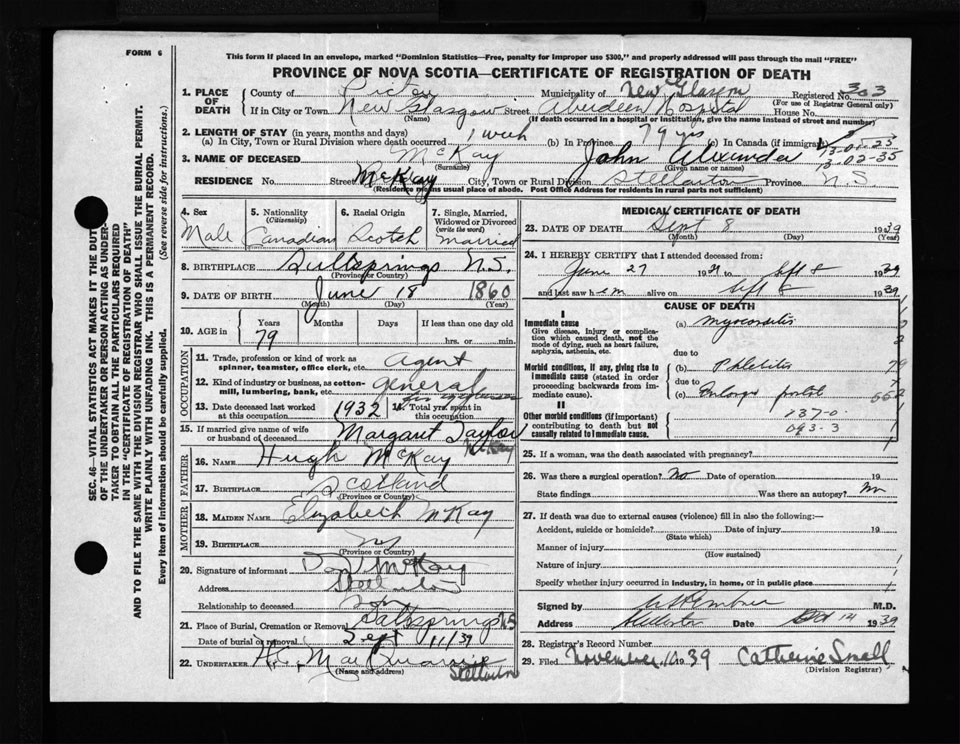 FORM 6
This form if placed in an envelope, marked "Dominion Statistics—Free, penalty for improper use $300," and properly addressed will pass through the mail "FREE"
PROVINCE OF NOVA SCOTIA—CERTIFICATE OF REGISTRATION OF DEATH
SEC. 46—VITAL STATISTICS ACT MAKES IT THE DUTY
OF THE UNDERTAKER OR PERSON ACTING AS UNDER-
TAKER TO OBTAIN ALL THE PARTICULARS REQUIRED
IN THE "CERTIFICATE OF REGISTRATION OF DEATH"
AND TO FILE THE SAME WITH THE DIVISION REGISTRAR WHO SHALL ISSUE THE BURIAL PERMIT.
WRITE PLAINLY WITH UNFADING INK. THIS IS A PERMANENT RECORD.
Every item of Information should be carefully supplied. (See reverse side for instructions.)
1. PLACE OF DEATH County of Pictou Municipality of New Glasgow Registered No. 303
(For use of Registrar General only)
If in City or Town New Glasgow Street Aberdeen Hospital House No.
(Name) (If death occurred in a hospital or Institution, give the name instead of street and number)
2. LENGTH OF STAY (in years, months and days)
(a) In City, Town or Rural Division where death occurred 1 week (b) In Province 79 yrs (c) In Canada (if immigrant)
3-02-35
3. NAME OF DECEASED McKay John Alexander
(Surname) (Given name or names)
RESIDENCE No. Street McKay City, Town or Rural Division Stellarton Province N.S.
(Residence means usual place of abode. Post Office Address for residents in rural parts not sufficient)
4. Sex Male
5. Nationality (Citizenship) Canadian
6. Racial Origin Scotch
7. Single, Married, Widowed or Divorced (write the word) married
8. BIRTHPLACE Saltsprings N.S.
(Province or Country)
9. DATE OF BIRTH June 18 1860
(Month) (Day) (Year)
10. AGE in Years Months Days If less than one day old
79 hrs. or min.
OCCUPATION
11. Trade, profession or kind of work as spinner, teamster, office clerk, etc. Agent
12. Kind of industry or business, as cotton-mill, lumbering, bank, etc. general
13. Date deceased last worked at this occupation 1932 14. Total yrs. spent in this occupation
15. If married give name of wife or husband of deceased Margaret Taylor McKay
FATHER
16. NAME Hugh McKay
17. BIRTHPLACE Scotland
(Province or Country)
MOTHER
18. MAIDEN NAME Elizabeth McKay
19. BIRTHPLACE NS
(Province or Country)
20. Signature of informant McKay
Address Stellarton
Relationship to deceased Son
21. Place of Burial, Cremation or Removal Saltsprings NS
Date of burial or removal Sept 11/39
22. UNDERTAKER MacQuarrie
(Name and address)
Stellarton
MEDICAL CERTIFICATE OF DEATH
23. DATE OF DEATH Sept 8 1939
(Month) (Day) (Year)
24. I HEREBY CERTIFY that I attended deceased from:
June 27 1939 to Sept 8 1939
and last saw him alive on Sept 8 1939
CAUSE OF DEATH
I
Immediate cause
Give disease, injury or complication which caused death, not the mode of dying, such as heart failure, asphyxia, asthenia, etc.
(a) myocarditis
due to
Morbid conditions, if any, giving rise to immediate cause (stated in order proceeding backwards from immediate cause)
(b) Phlebitis
due to
(c)
II
Other morbid conditions (if important) contributing to death but not causally related to immediate cause.
137-0
093-3
25. If a woman, was the death associated with pregnancy?
26. Was there a surgical operation? No Date of operation 19
State findings Was there an autopsy? no
27. If death was due to external causes (violence) fill in also the following:—
Accident, suicide or homicide? Date of injury 19
(State which)
Manner of injury
(How sustained)
Nature of injury
Specify whether injury occurred in industry, in home, or in public place
Signed by M.D.
Address Stellarton Date Oct 14 1939
28. Registrar's Record Number
29. Filed November 10 1939 Catherine Small
(Division Registrar)